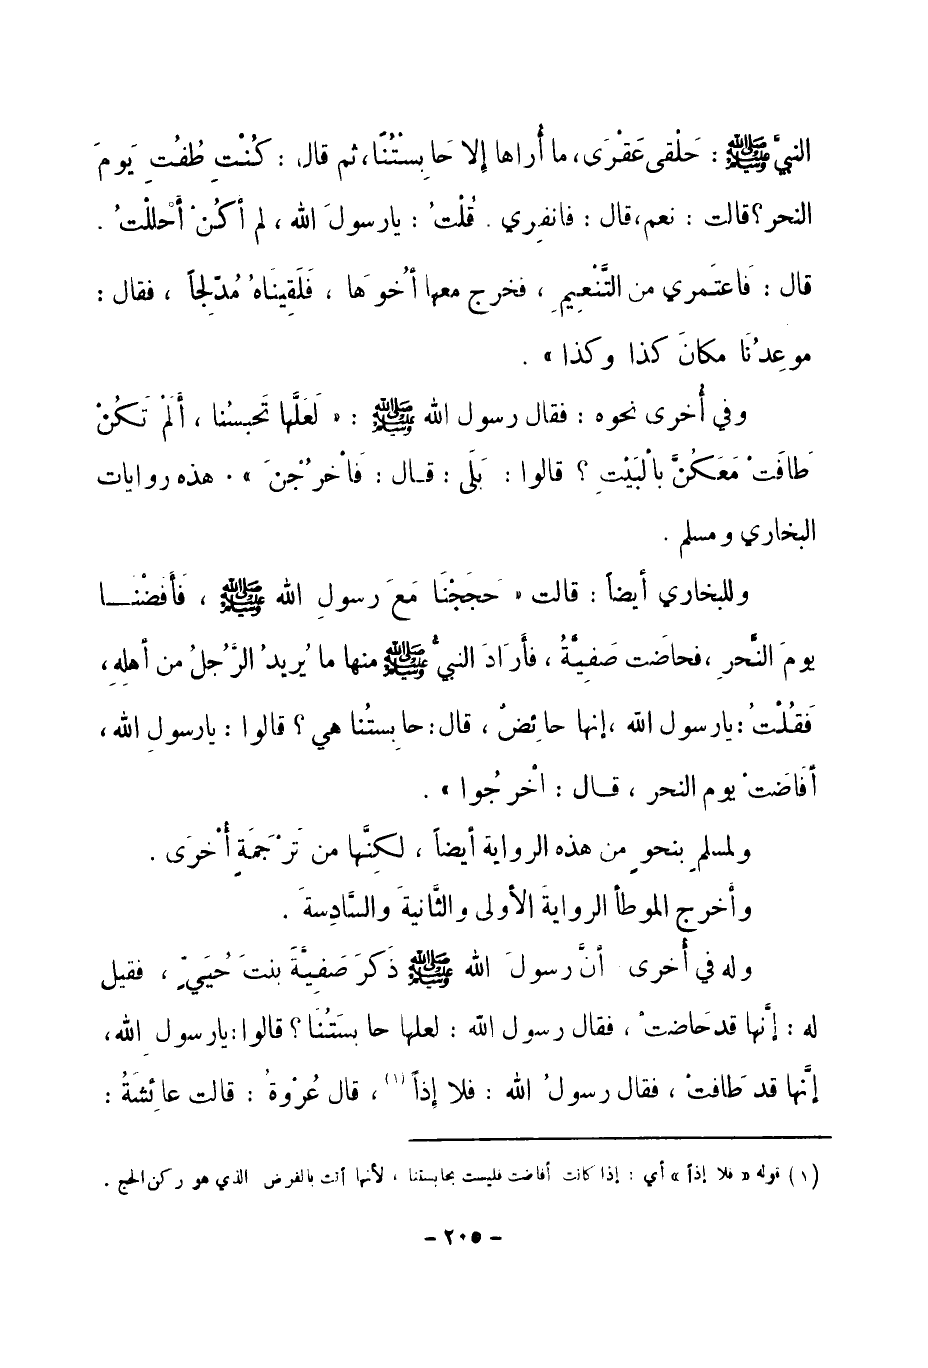 النبيَّ ﷺ : حَلْقى عَقْرَى، ما أُراها إلا حَابِسَتُنَا، ثم قال : كُنْتِ طُفْتِ يَومَ
النحر؟ قالت : نعم، قال : فانفِري . قُلْتُ : يارسولَ الله ، لم أكُنْ أَحْلَلْتُ .
قال : فَاعتَمري من التَّنْعِيمِ ، فخرج معها أخُوهَا ، فَلَقِينَاهُ مُدّلِجاً ، فقال :
موعِدُنَا مكانَ كذا وكذا » .
وفي أُخرى نحوه : فقال رسول الله ﷺ : « لَعَلَّها تَحبِسُنا ، أَلَمْ تَكُنْ
طَافَتْ مَعَكُنَّ بِالْبَيْتِ ؟ قالوا : بَلَى : قـال : فَاخْرُجْنَ » . هذه روايات
البخاري ومسلم .
وللبخاري أيضاً : قالت « حَجَجْنَا مَعَ رسولِ الله ﷺ ، فَأَفَضْنَــا
يومَ النَّحرِ ، فحاضَت صَفِيَّةُ ، فأَرَادَ النبيُّ ﷺ منها ما يُريدُ الرَّجلُ من أهلِهِ،
فَقُلْتُ : يارسول الله ، إنها حائِضٌ ، قال : حابِستُنا هي ؟ قالوا : يارسولَ الله ،
أفَاضَتْ يوم النحر ، قـال : اخْرجُوا » .
ولمسلمٍ بنحوٍ من هذه الرواية أيضاً ، لكنَّها من تَرْجَمَةٍ أُخْرَى .
وأخرج الموطأ الروايةَ الأولى والثَّانيةَ والسَّادِسةَ .
وله في أُخرى أنَّ رسولَ الله ﷺ ذَكَرَ صَفِيَّةَ بنتَ حُيَيٍّ ، فقيل
له : إنَّها قد حَاضتْ ، فقال رسول الله : لعلها حابِسَتُنَا ؟ قالوا : يارسولَ الله ،
إنَّها قد طَافتْ ، فقال رسولُ الله : فلا إذاً (١) ، قال عُرْوةُ : قالت عائِشَةُ :
(١) قوله « فلا إذاً » أي : إذا كانت أفاضت فليست بحابستنا ، لأنها أتت بالفرض الذي هو ركن الحج .
- ٢٠٥ -